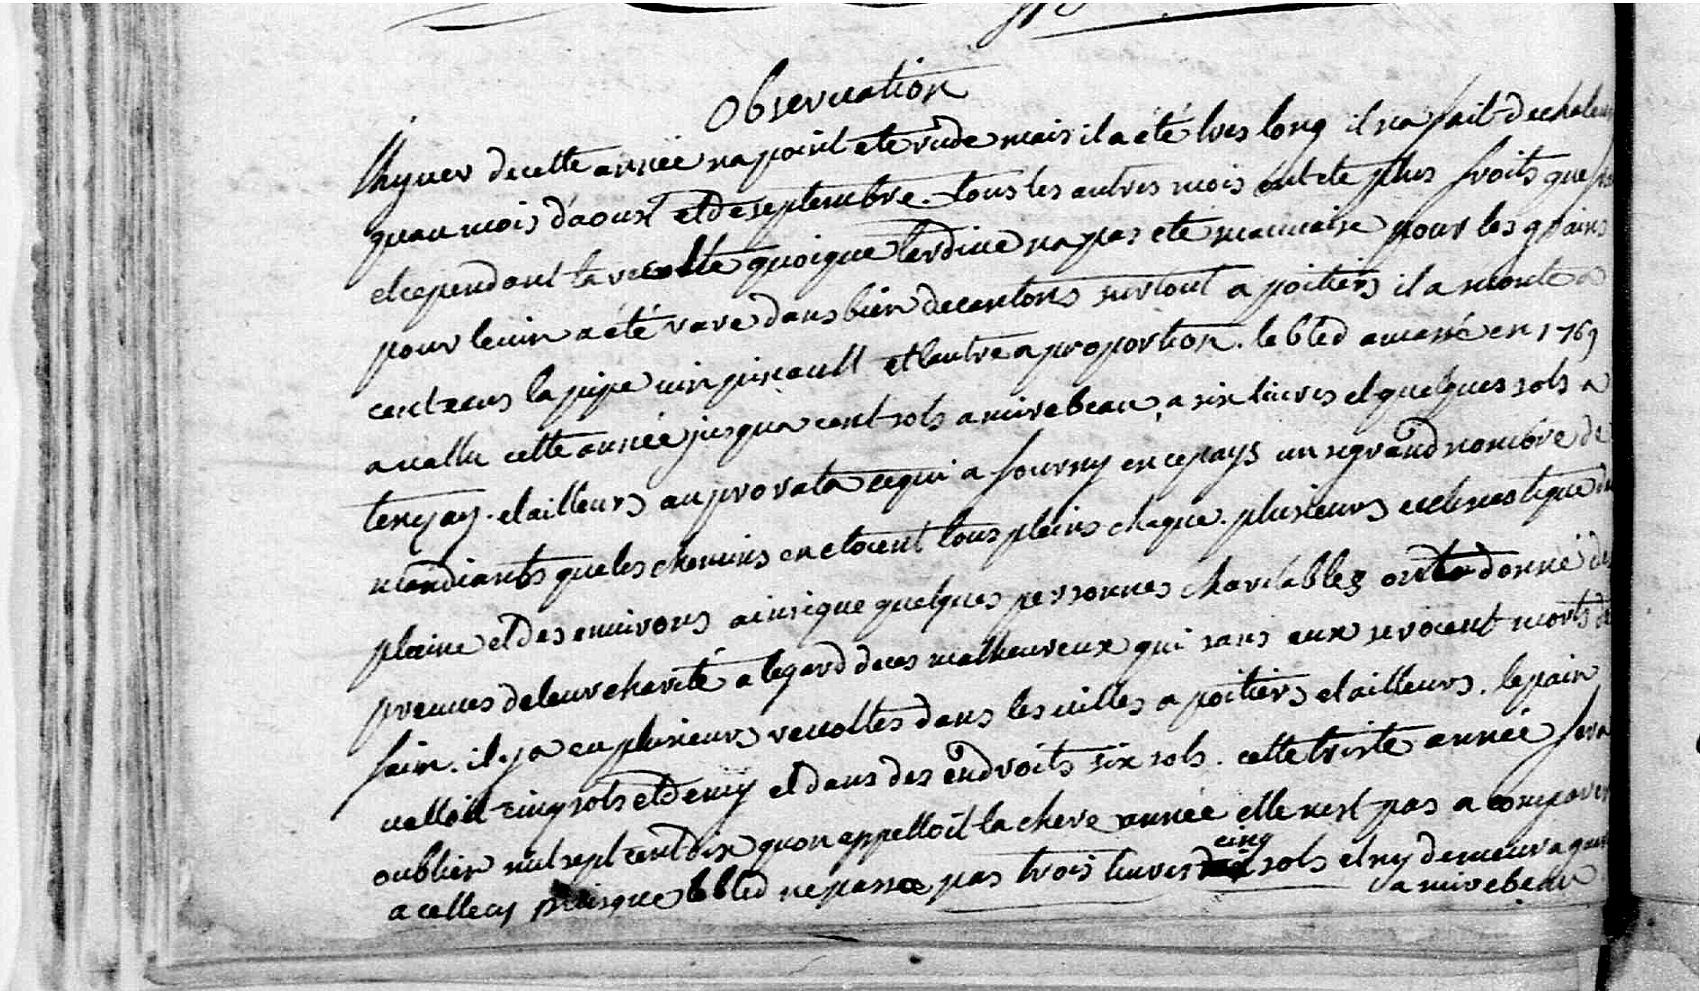 Observation
l'hyver decette année na point eté rude mais il a été tres long il na fait de chaleur
quau mois d'aoust et de septembre. tous les autres mois ont ete plus froits que
et cependant la recolte quoique tardive na pas ete mauvaise pour les grains
pour le vin a été rare dans bien de cantons surtout a poitiers il a monté a
cent ecus la pipe vin pineault et lautre a proportion. le bled amassé en 1769
a vallu cette année jusqua cent sols a mirebeau, a six livres et quelques sols a
tenezay. et ailleurs au prorata ce qui a fourny en ce pays un si grand nombre de
mandiants que les chemins en etoient tous pleins chaque. plusieurs eclesiastique du
plaine et des environs ainsi que quelques personnes charitables ont donné des
preuves de leur charité a legard de ces malheureux qui sans eux seroient morts de
faim. il y a eu plusieurs revoltes dans les villes a poitiers et ailleurs. le pain
valloit cinq sols et demy et dans des endroits six sols. cette triste année fera
oublier mil sept cent dix quon appelloit la chere année elle nest pas a comparer
a cellecy puisque le bled ne passa pas trois livres cinq sols et ny demeura que
a mirebeau